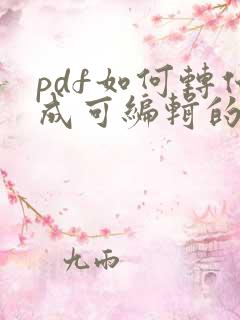 pdf如何轉化
成可編輯的
九雨